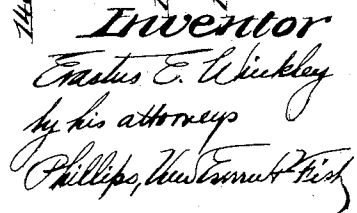 Inventor
Erastus E. Winkley
by his attorneys
Phillips, Van Everen & Fish